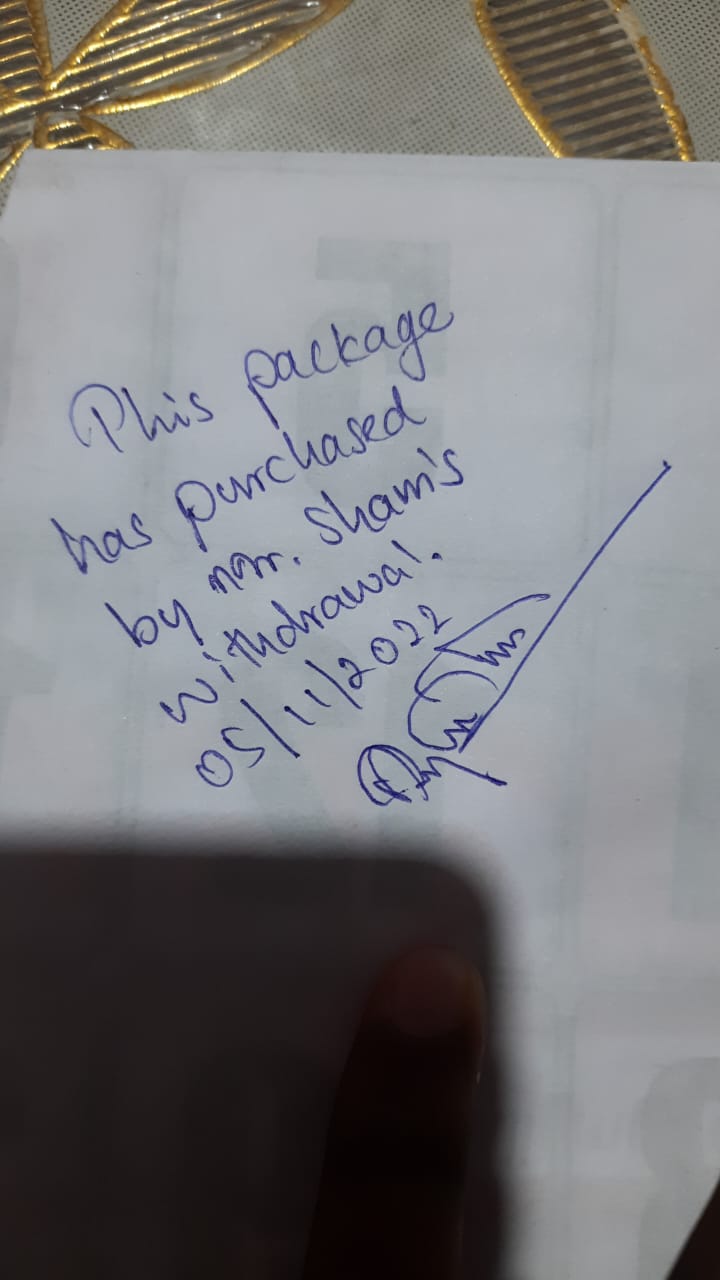 This package
has purchased
by mr. Sham's
withdrawal.
05/11/2022